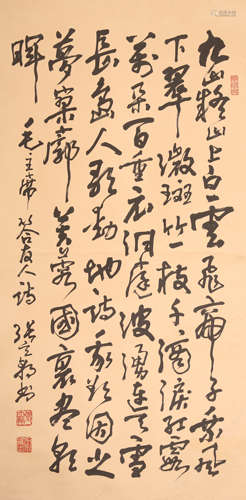 九嶷山上白雲飛帝子乘風
下翠微斑竹一枝千滴淚紅霞
萬朵百重衣洞庭波湧連天雪
長島人歌動地詩我欲因之
夢寥廓芙蓉國裏盡朝
暉 毛主席答友人詩 張